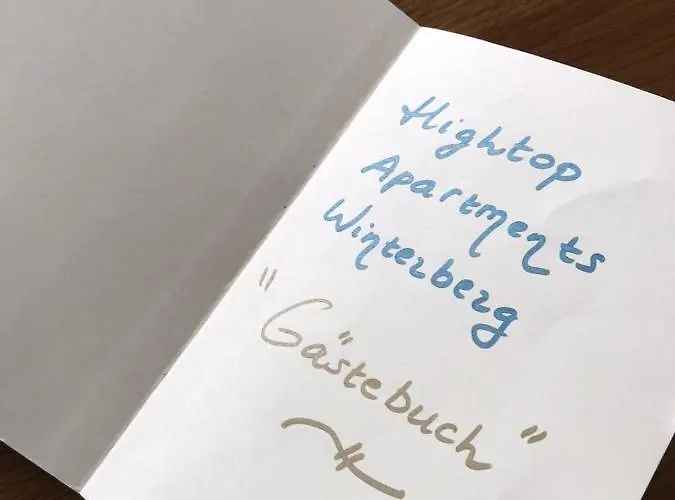 Hightop
Apartments
Winterberg
"Gästebuch"